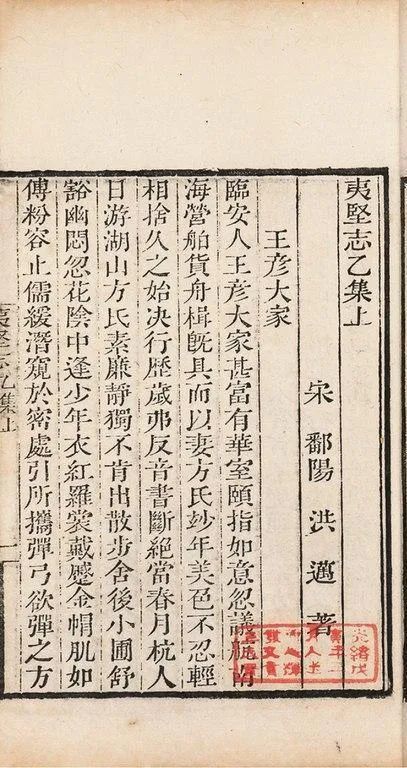 夷堅志乙集上
宋 鄱陽 洪 邁 著
王彥大家
臨安人王彥大家甚富有華室頤指如意忽議航南
海營舶貨舟楫旣具而以妻方氏妙年美色不忍輕
相捨久之始决行歷歲弗反音書斷絕當春月杭人
日游湖山方氏素廉靜獨不肯出散步舍後小圃舒
豁幽悶忽花陰中逢少年衣紅羅裳戴蹙金帽肌如
傅粉容止儒緩潛窺於密處引所攜彈弓欲彈之方
夷堅志乙集上
一